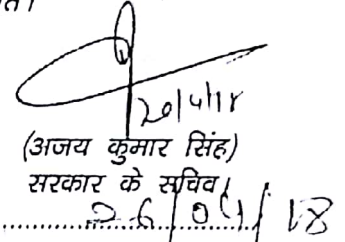 20/4/18
(अजय कुमार सिंह)
सरकार के सचिव/
26/04/18